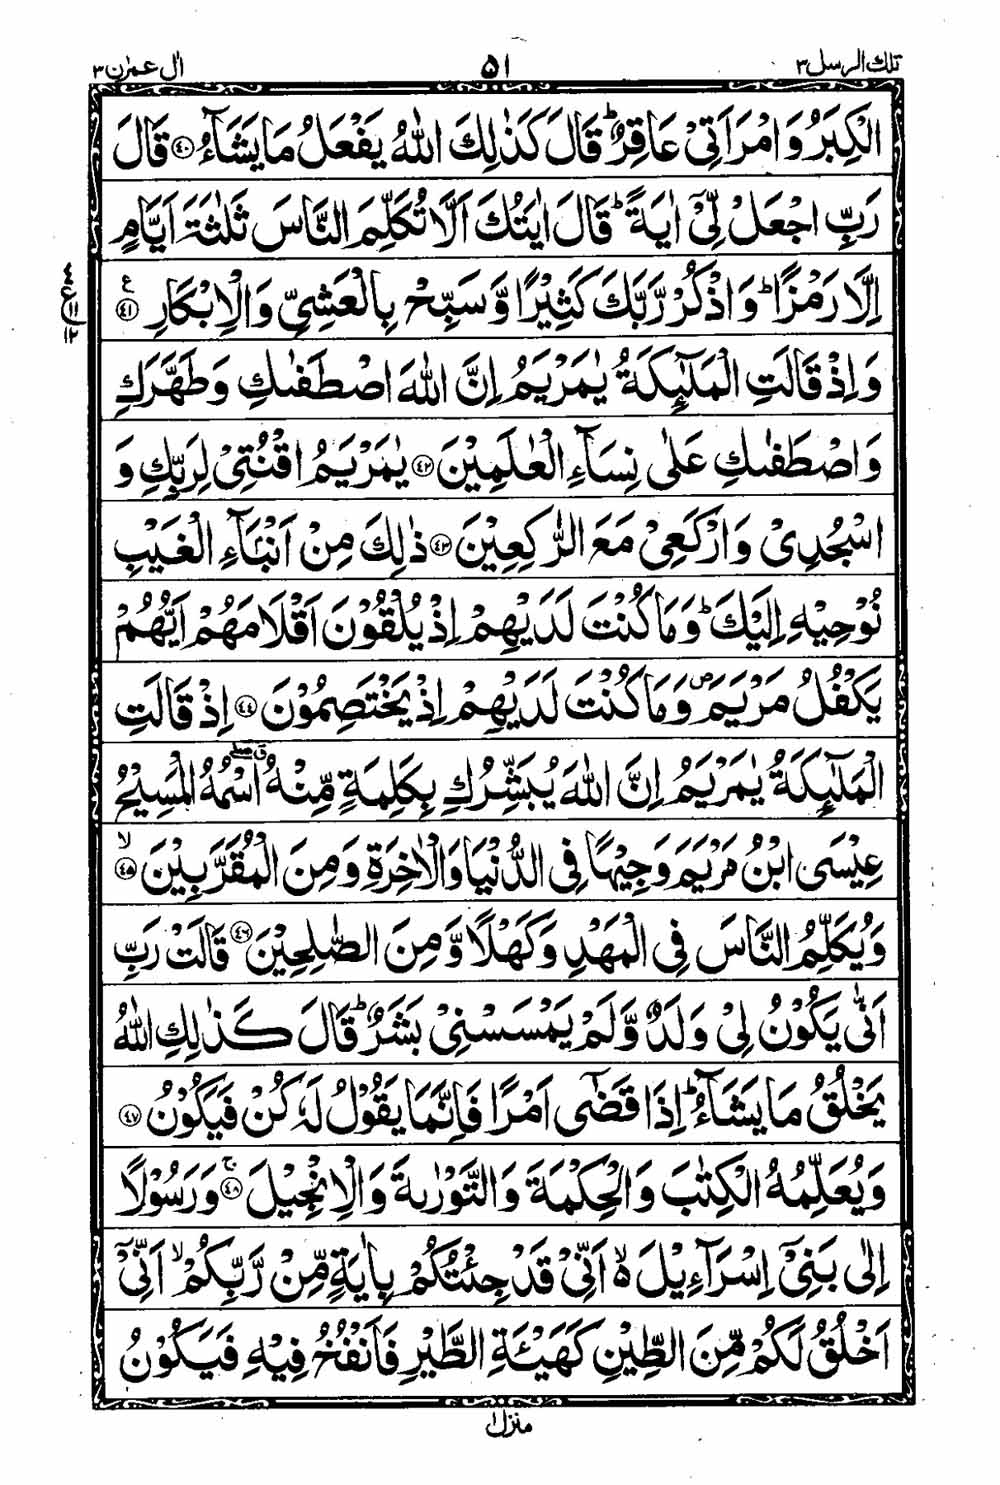 تلك الرسل ٣ ٥١ اٰل عمرٰن ٣
الْكِبَرُ وَامْرَاَتِىْ عَاقِرٌ ؕ قَالَ كَذٰلِكَ اللّٰهُ يَفْعَلُ مَا يَشَآءُ ﴿٤٠﴾ قَالَ
رَبِّ اجْعَلْ لِّىْٓ اٰيَةً ؕ قَالَ اٰيَتُكَ اَلَّا تُكَلِّمَ النَّاسَ ثَلٰثَةَ اَيَّامٍ
اِلَّا رَمْزًا ؕ وَاذْكُرْ رَّبَّكَ كَثِيْرًا وَّسَبِّحْ بِالْعَشِىِّ وَالْاِبْكَارِ ﴿٤١﴾ ع
٤ ع ١١ ١٢
وَاِذْ قَالَتِ الْمَلٰٓئِكَةُ يٰمَرْيَمُ اِنَّ اللّٰهَ اصْطَفٰىكِ وَطَهَّرَكِ
وَاصْطَفٰىكِ عَلٰى نِسَآءِ الْعٰلَمِيْنَ ﴿٤٢﴾ يٰمَرْيَمُ اقْنُتِىْ لِرَبِّكِ وَ
اسْجُدِىْ وَارْكَعِىْ مَعَ الرّٰكِعِيْنَ ﴿٤٣﴾ ذٰلِكَ مِنْ اَنْۢبَآءِ الْغَيْبِ
نُوْحِيْهِ اِلَيْكَ ؕ وَمَا كُنْتَ لَدَيْهِمْ اِذْ يُلْقُوْنَ اَقْلَامَهُمْ اَيُّهُمْ
يَكْفُلُ مَرْيَمَ ۪ وَمَا كُنْتَ لَدَيْهِمْ اِذْ يَخْتَصِمُوْنَ ﴿٤٤﴾ اِذْ قَالَتِ
الْمَلٰٓئِكَةُ يٰمَرْيَمُ اِنَّ اللّٰهَ يُبَشِّرُكِ بِكَلِمَةٍ مِّنْهُ ۖ اسْمُهُ الْمَسِيْحُ
عِيْسَى ابْنُ مَرْيَمَ وَجِيْهًا فِى الدُّنْيَا وَالْاٰخِرَةِ وَمِنَ الْمُقَرَّبِيْنَ ﴿٤٥﴾ ۙ
وَيُكَلِّمُ النَّاسَ فِى الْمَهْدِ وَكَهْلًا وَّمِنَ الصّٰلِحِيْنَ ﴿٤٦﴾ قَالَتْ رَبِّ
اَنّٰى يَكُوْنُ لِىْ وَلَدٌ وَّلَمْ يَمْسَسْنِىْ بَشَرٌ ؕ قَالَ كَذٰلِكِ اللّٰهُ
يَخْلُقُ مَا يَشَآءُ ؕ اِذَا قَضٰٓى اَمْرًا فَاِنَّمَا يَقُوْلُ لَهٗ كُنْ فَيَكُوْنُ ﴿٤٧﴾
وَيُعَلِّمُهُ الْكِتٰبَ وَالْحِكْمَةَ وَالتَّوْرٰىةَ وَالْاِنْجِيْلَ ﴿٤٨﴾ ۚ وَرَسُوْلًا
اِلٰى بَنِىْٓ اِسْرَآءِيْلَ ۙ۬ اَنِّىْ قَدْ جِئْتُكُمْ بِاٰيَةٍ مِّنْ رَّبِّكُمْ ۙ اَنِّىْٓ
اَخْلُقُ لَكُمْ مِّنَ الطِّيْنِ كَهَيْئَةِ الطَّيْرِ فَاَنْفُخُ فِيْهِ فَيَكُوْنُ
منزل ١